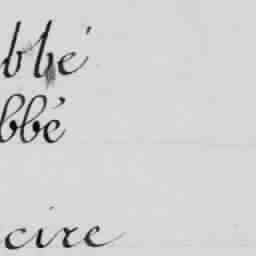 bbé
bbé
cire